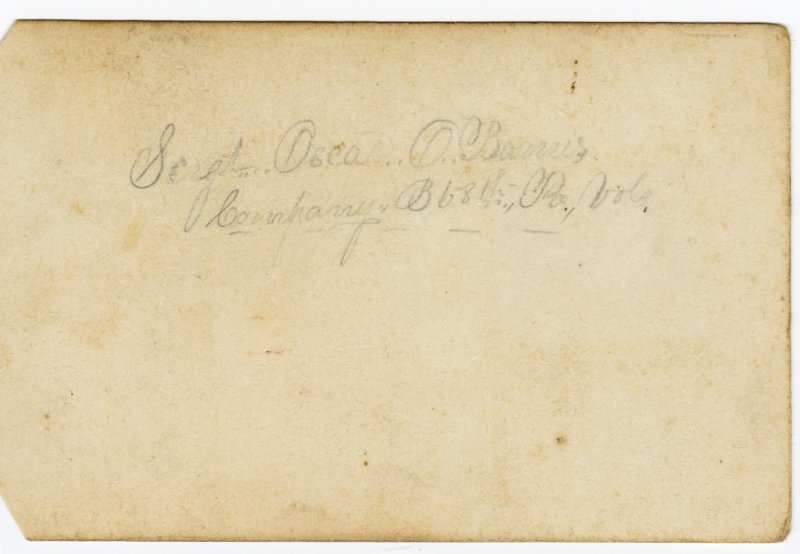 Sergt. Oscar. O. Barnes.
Company. B 68th, Pa, Vols,